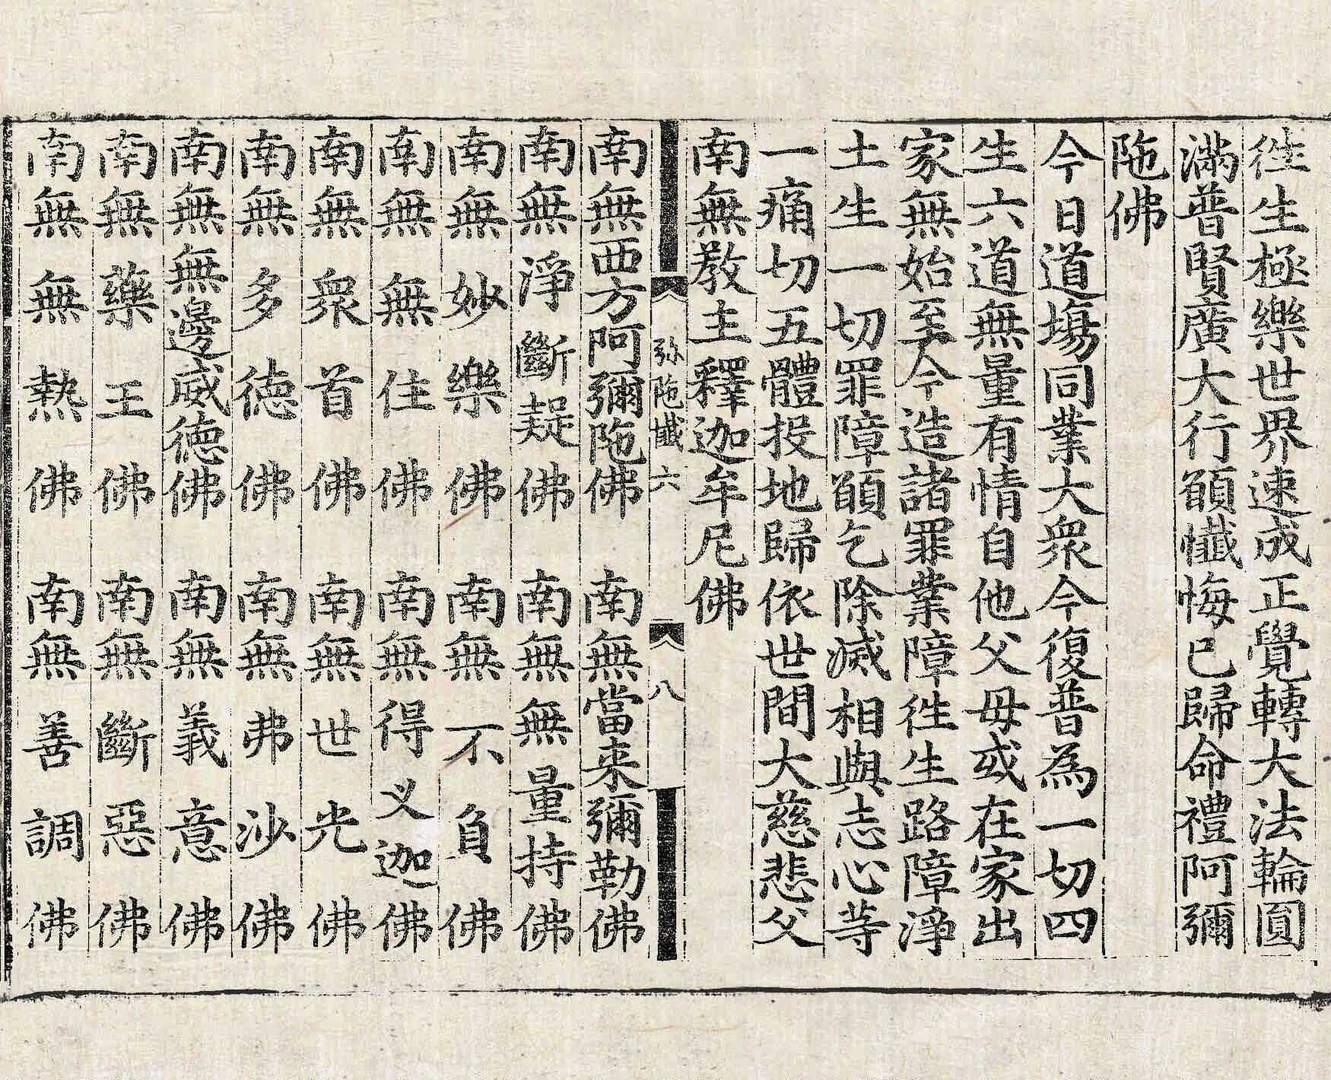 徃生極樂世界速成正覺轉大法輪圓
滿普賢廣大行願懺悔已歸命禮阿彌
陁佛
今日道場同業大衆今復普為一切四
生六道無量有情自他父母或在家出
家無始至今造諸罪業障徃生路障淨
土生一切罪障願乞除滅相與志心等
一痛切五體投地歸依世間大慈悲父
南無教主釋迦牟尼佛
弥陁懺六 八
南無西方阿彌陁佛 南無當来彌勒佛
南無淨斷疑佛 南無無量持佛
南無妙樂佛 南無不負佛
南無無住佛 南無得义迦佛
南無衆首佛 南無世光佛
南無多德佛 南無弗沙佛
南無無邊威德佛 南無義意佛
南無藥王佛 南無斷惡佛
南無無熱佛 南無善調佛